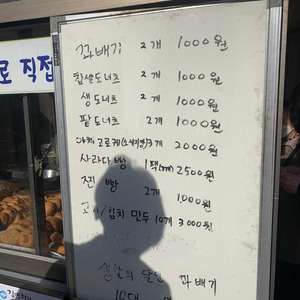 로 직접
꽈배기 2개 1000원
찹쌀도너츠 2개 1000원
생도너츠 2개 1000원
팥도너츠 2개 1000원
고로케 3개 2000원
사라다빵 1팩 2500원
찐빵 2개 1000원
고기/김치 만두 10개 3000원
생활의 달인 꽈배기
10대